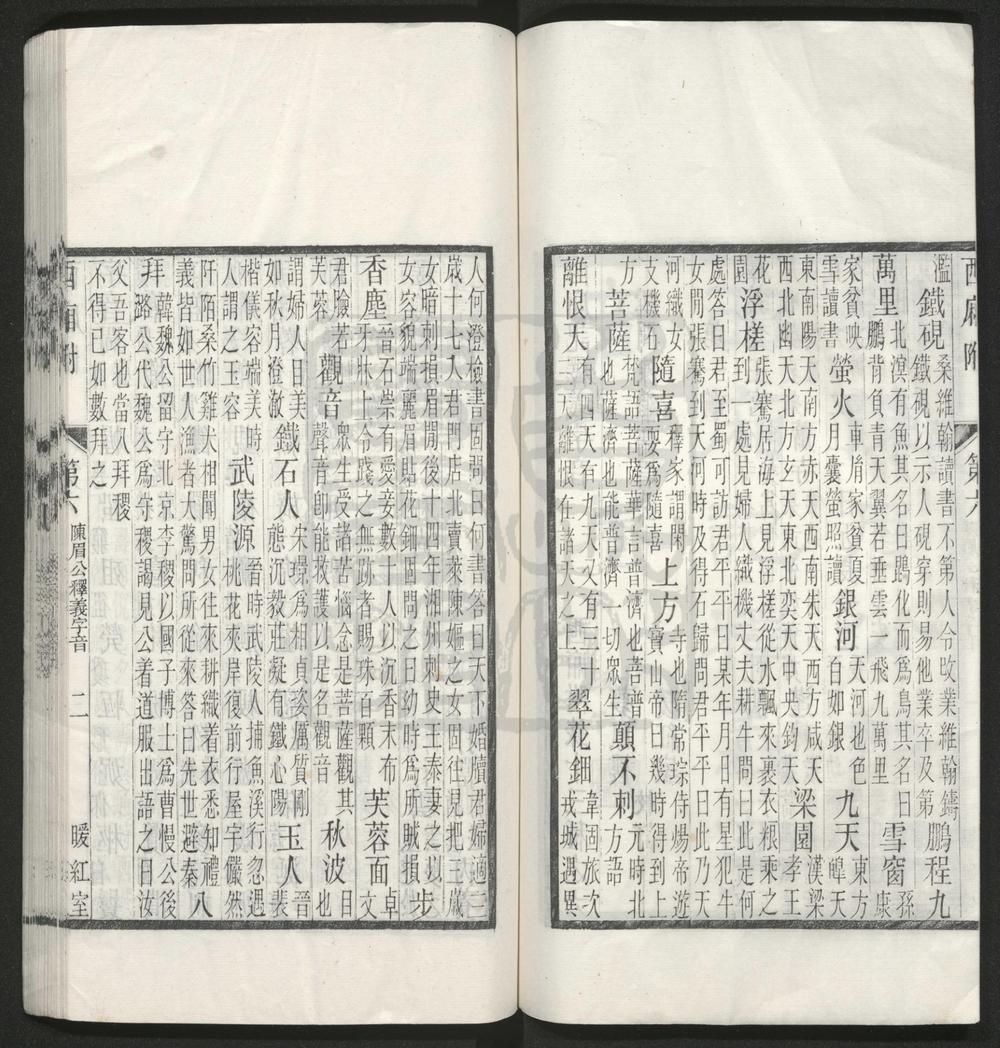 西廂附 第六
濫 鐵硯 桑維翰讀書不第人令改業維翰鑄
鐵硯以示人硯穿則易他業卒及第 鵬程九
萬里 北溟有魚其名曰鵾化而爲鳥其名曰
鵬背負青天翼若垂雲一飛九萬里 雪窗 孫康
家貧映雪讀書 螢火 車胤家貧夏月囊螢照讀 銀河 天河也色白如銀 九天 東方皥天
東南陽天南方赤天西南朱天西方咸天
西北幽天北方玄天東北奕天中央鈞天 梁園 漢梁孝王
花園 浮槎 張騫居海上見浮槎從水飄來裹衣根乘之
到一處見婦人織機丈夫耕牛問曰此是何
處答曰君至蜀可訪君平平日某年月日有星犯牛
女間張騫到天河時及得石歸問君平平日此乃天
河織女支機石 隨喜 釋家謂閑耍爲隨喜 上方 寺也隋常琮侍煬帝遊寶山帝曰幾時得到上
方 菩薩 梵語菩薩華言普濟也菩普也薩濟也能普濟一切眾生 顛不刺 元時北方方語
離恨天 有四天有九天又有三十三天離恨在諸天之上 翠花鈿 韋固旅次戎城遇異
人何澄檢書固問曰何書答曰天下婚牘君婦適三
歲十七入君門店北賣菜陳嫗之女固往見把三歲
女暗刺損眉閒後十四年湘州刺史王泰妻之以
女容貌端麗眉貼花鈿固問之曰幼時爲所賊損 步
香塵 晉石崇有愛妾數十人以沉香末布
牙牀上令踐之無跡者賜珠百顆 芙蓉面 卓文
君臉若芙蓉 觀音 眾生受諸苦惱念是菩薩觀其
聲音卽能救護以是名觀音 秋波 目也
謂婦人目美如秋月澄澈 鐵石人 宋璟爲相貞姿厲質剛
態沉毅莊凝有鐵心陽 玉人 晉裴
楷儀容端美時人謂之玉容 武陵源 晉時武陵人捕魚溪行忽遇
桃花夾岸復前行屋宇儼然
阡陌桑竹雞犬相聞男女往來耕織着衣悉知禮
義皆如世人漁者大驚問所從來答曰先世避秦 八
拜 韓魏公留守北京李稷以國子博士爲曹慢公後
路公代魏公爲守稷謁見公着道服出語之曰汝
父吾客也當八拜稷
不得已如數拜之
西廂附 第六 陳眉公釋義字音 二 暖紅室